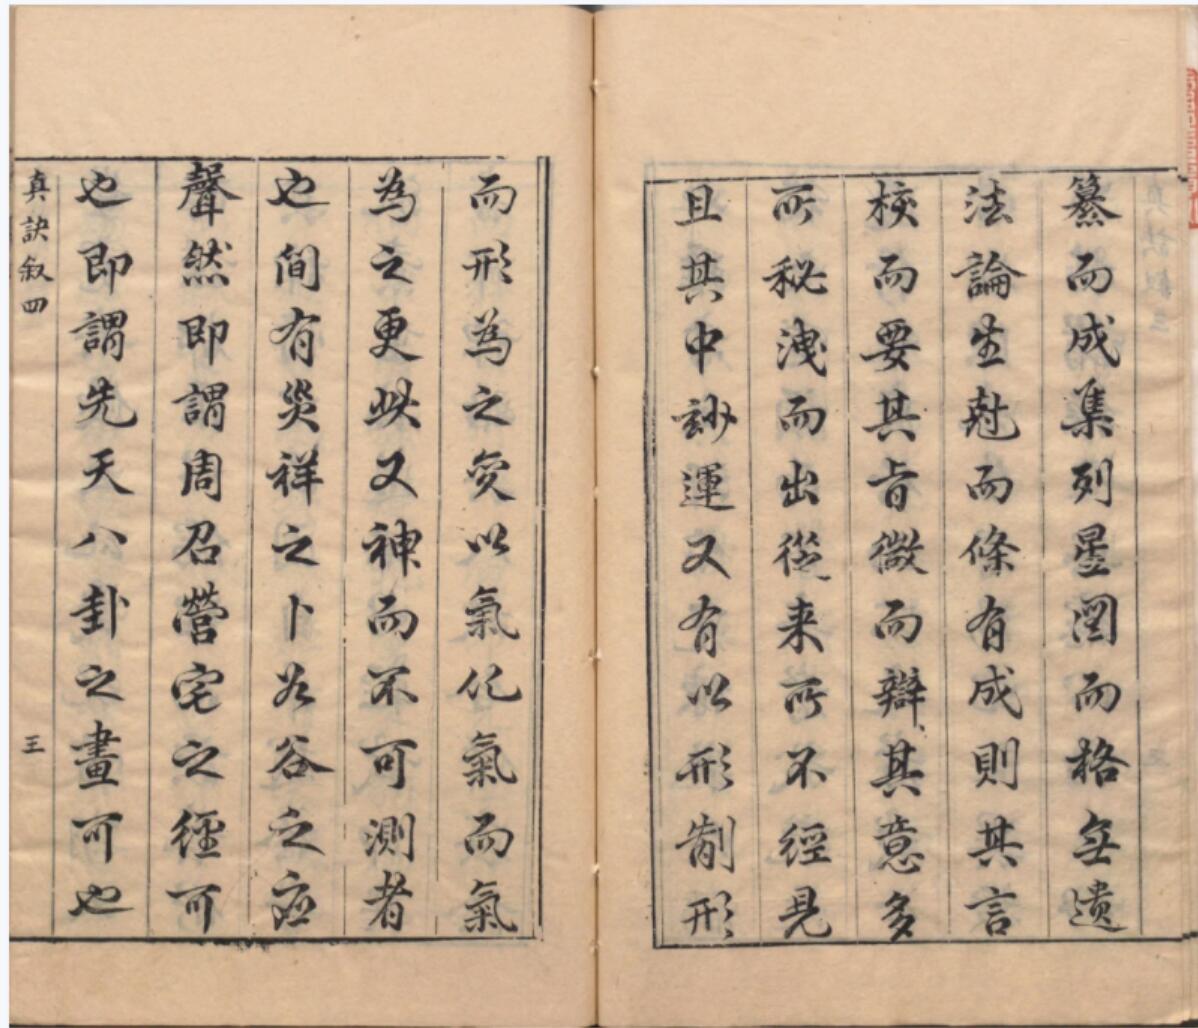 纂而成集列星圖而格無遺
法論生尅而條有成則其言
核而要其旨微而辯其意多
所秘洩而出從来所不經見
且其中玅運又有以形制形
而形為之変以氣化氣而氣
為之更此又神而不可測者
也間有災祥之卜如谷之应
聲然即謂周召營宅之徑可
也即謂先天八卦之畫可也
真訣叙四
三